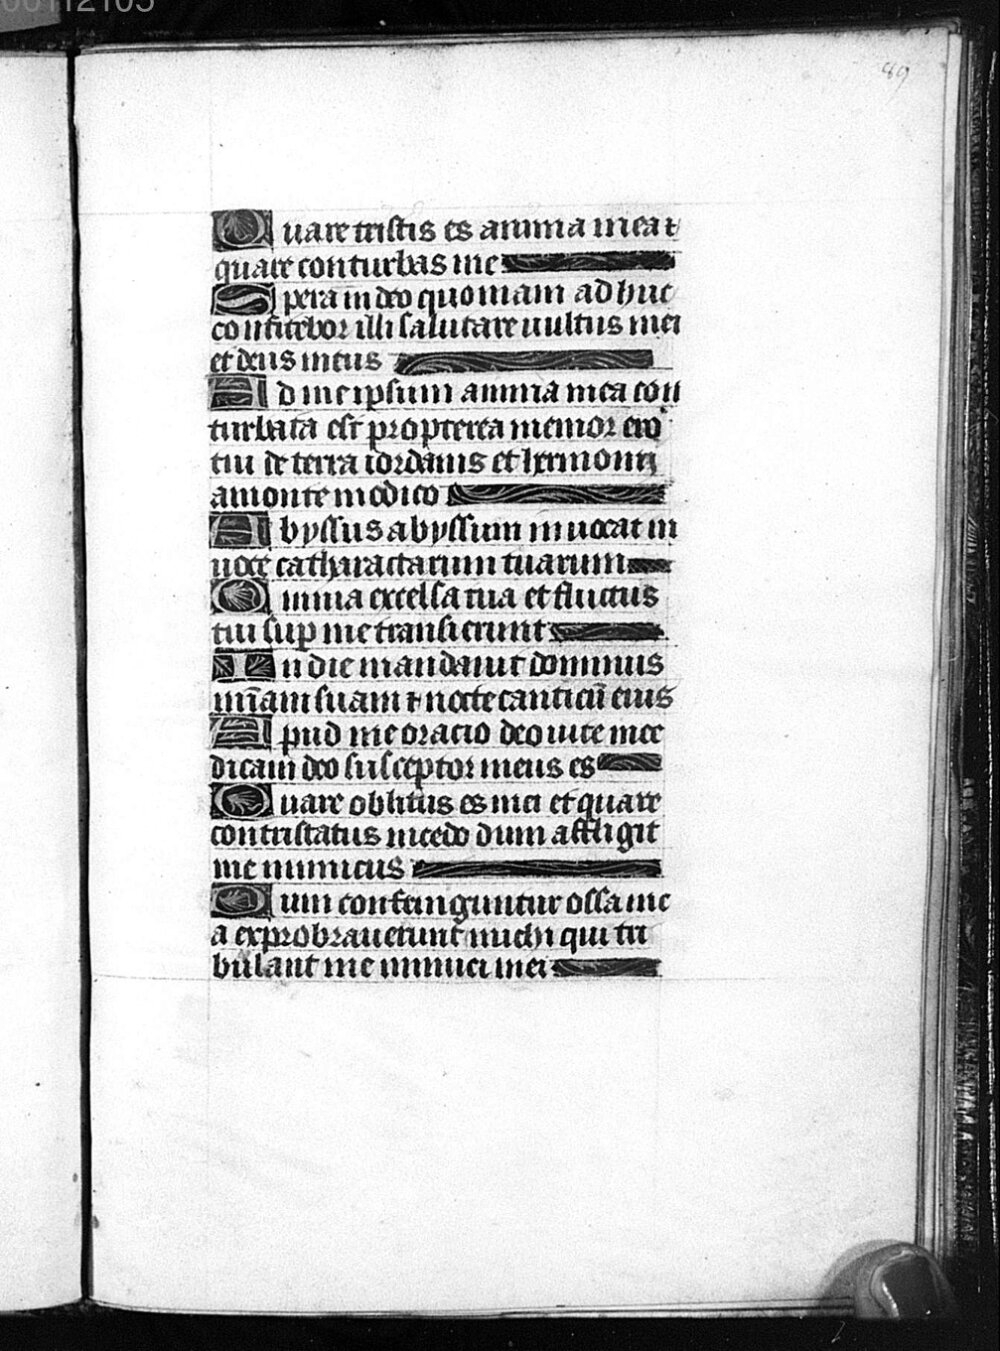 00112105
89
Quare tristis es anima mea ⁊
quare conturbas me
Spera in deo quoniam adhuc
confitebor illi salutare uultus mei
et deus meus
Ad me ipsum anima mea con
turbata est propterea memor ero
tui de terra iordanis et hermonij
amonte modico
Abyssus abyssum inuocat in
uoce catharactarum tuarum
Omnia excelsa tua et fluctus
tui sup me transierunt
In die mandauit dominus
mīam suam ⁊ nocte canticū eius
Apud me oracio deo uite mee
dicam deo susceptor meus es
Quare oblitus es mei et quare
contristatus incedo dum affligit
me inimicus
Dum confringuntur ossa me
a exprobrauerunt michi qui tri
bulant me inimici mei